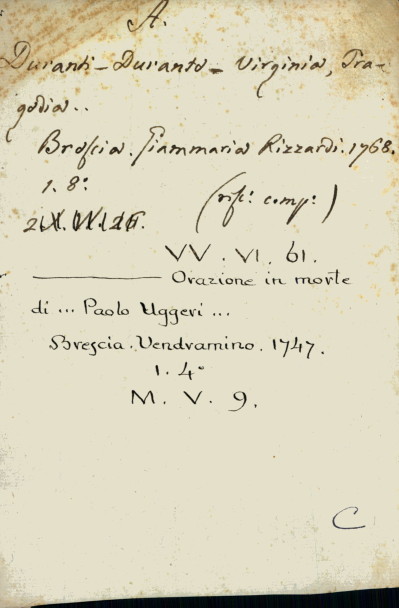 A.
Duranti - Durante - Virginia, Tra-
gedia..
Brescia. Giammaria Rizzardi. 1768.
1. 8º
(rifº: compº:)
VV. VI. 61.
Orazione in morte
di ... Paolo Uggeri ...
Brescia. Vendramino. 1747.
1. 4º
M. V. 9.
C